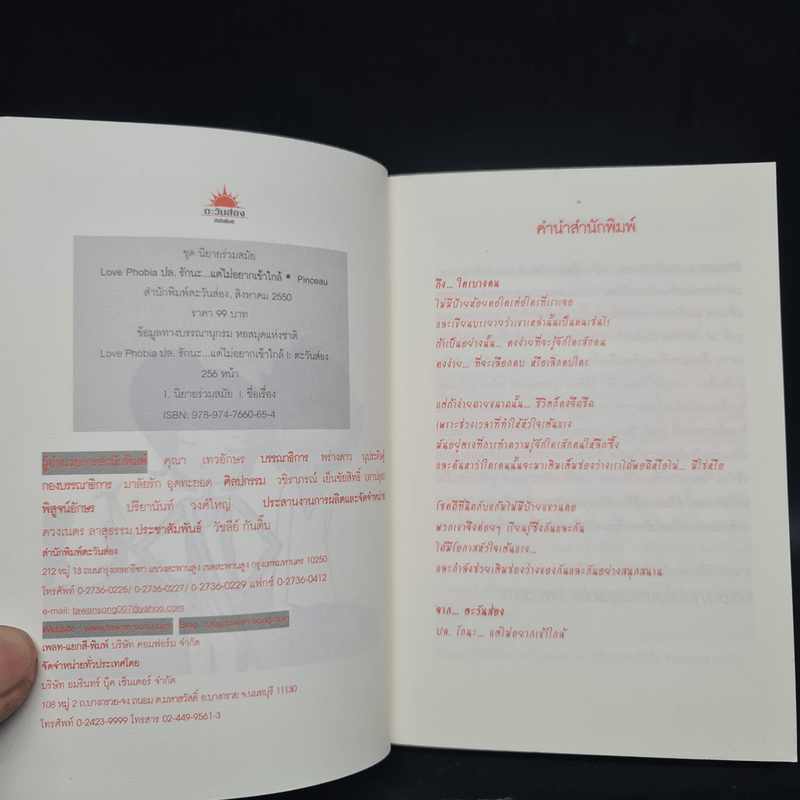 ตะวันส่อง
สำนักพิมพ์
ชุด นิยายร่วมสมัย
Love Phobia ปล. รักนะ...แต่ไม่อยากเข้าใกล้ • Pinceau
สำนักพิมพ์ตะวันส่อง, สิงหาคม 2550
ราคา 99 บาท
ข้อมูลทางบรรณานุกรม หอสมุดแห่งชาติ
Love Phobia ปล. รักนะ...แต่ไม่อยากเข้าใกล้ I: ตะวันส่อง
256 หน้า
1. นิยายร่วมสมัย I. ชื่อเรื่อง
ISBN: 978-974-7660-65-4
ผู้อำนวยการสำนักพิมพ์ คุณา เทวอักษร บรรณาธิการ พร่างดาว นุประดิษฐ์
กองบรรณาธิการ มาลัยรัก อุดทะยอด ศิลปกรรม วชิราภรณ์ เย็นชัยสิทธิ์
พิสูจน์อักษร ปรียานันท์ วงศ์ใหญ่ ประสานงานการผลิตและจัดจำหน่าย
ดวงเนตร ลาสุธรรม ประชาสัมพันธ์ วัชลีย์ กันติ๊บ
สำนักพิมพ์ตะวันส่อง
212 หมู่ 13 ถนนกรุงเทพกรีฑา แขวงสะพานสูง เขตสะพานสูง กรุงเทพมหานคร 10250
โทรศัพท์ 0-2736-0225/ 0-2736-0227/ 0-2736-0229 แฟกซ์ 0-2736-0412
e-mail: tawansong007@yahoo.com
Website : www.tawan-song.com Blog : blog.tawan-song.com
เพลท-แยกสี-พิมพ์ บริษัท คอมฟอร์ม จำกัด
จัดจำหน่ายทั่วประเทศโดย
บริษัท อมรินทร์ บุ๊ค เซ็นเตอร์ จำกัด
108 หมู่ 2 ถ.บางกรวย-จง ถนอม ต.มหาสวัสดิ์ อ.บางกรวย จ.นนทบุรี 11130
โทรศัพท์ 0-2423-9999 โทรสาร 02-449-9561-3
คำนำสำนักพิมพ์
ถึง... ใครบางคน
ไม่มีป้ายห้อยคอใครต่อใครที่เราเจอ
และเขียนบรรยายว่าเขาเหล่านั้นเป็นคนเช่นไร
ถ้าเป็นอย่างนั้น... คงง่ายที่จะรู้จักใครสักคน
คงง่าย... ที่จะเลือกคบ หรือเลิกคบใคร
แต่ถ้าง่ายดายขนาดนั้น... ชีวิตก็คงจืดชืด
เพราะช่วงเวลาที่ทำให้หัวใจเต้นแรง
มันอยู่ตรงที่การทำความรู้จักใครสักคนให้ลึกซึ้ง
และค้นหาว่าใครคนนั้นจะมาเติมเต็มช่องว่างเราได้พอดีหรือไม่... มิใช่หรือ
โชคดีที่นิดกับแก้มไม่มีป้ายแขวนคอ
พวกเขาจึงค่อยๆ เรียนรู้ซึ่งกันและกัน
ได้มีโอกาสหัวใจเต้นแรง...
และกำลังช่วยเติมช่องว่างของกันและกันอย่างสนุกสนาน
จาก... ตะวันส่อง
ปล. รักนะ... แต่ไม่อยากเข้าใกล้